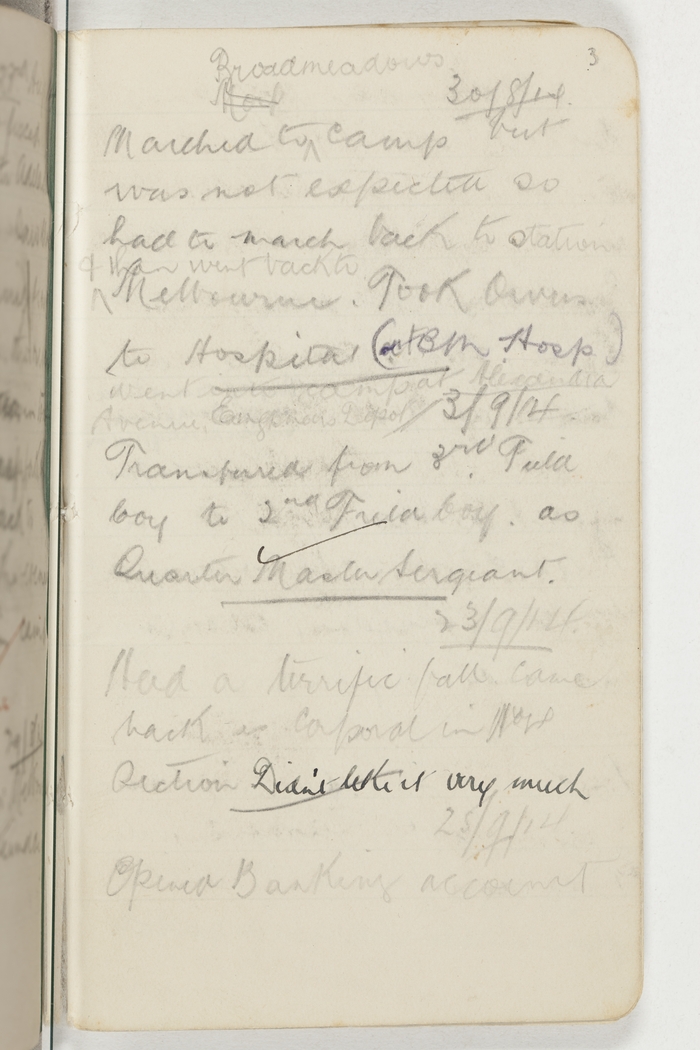 3
Broadmeadows
30/8/14.
Marched to Camp but
was not expected so
had to march back to station
& than went back to
Melbourne. Took Owens
to Hospital (at 8th Hosp)
went into camp at Alexandra
Avenue, Engineers Depot 3/9/14
Transfured from 3rd Field
Coy to 2nd Field Coy. as
Quarter Master Sergeant.
23/9/14.
Had a terrific fall. Came
back as Corporal in No 4
Section Didn't like it very much
25/9/14
Opened Banking account